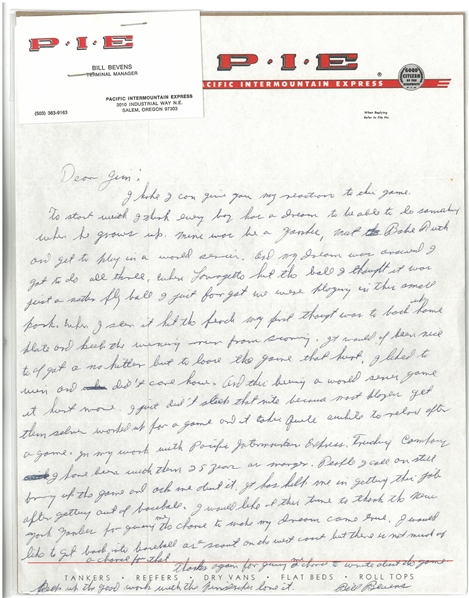 P·I·E
BILL BEVENS
TERMINAL MANAGER
PACIFIC INTERMOUNTAIN EXPRESS
3010 INDUSTRIAL WAY N.E.
SALEM, OREGON 97303
(503) 363-9163
P·I·E
PACIFIC INTERMOUNTAIN EXPRESS
GOOD CITIZEN OF THE HIGHWAYS
When Replying
Refer to File No.
Dear Jim:
I hope I can give you my reaction to this game.
To start with I think every boy has a dream to be able to do something
when he grows up. Mine was be a Yankee, meet Babe Ruth
and get to play in a world series. And my dream was answered I
got to do all three. When Lavagetto hit the ball I thought it was
just a nother fly ball I just forgot we were playing in this small
park. When I seen it hit the fence my first thought was to back up home
plate and keep the winning run from scoring. It would of been nice
to of got a no hitter but to loose the game that hurt, I liked to
win and didn't care how. And this being a world series game
it hurt more. I just didn't sleep that nite because most players get
them selves worked up for a game and it takes quite awhile to relax after
a game. In my work with Pacific Intermountain Express Trucking Company
I have been with them 25 years as manager. People I call on still
bring up the game and ask me about it. It has help me in getting this job
after getting out of baseball. I would like at this time to thank the New
York Yankees for giving me the chance to make my dreams come true. I would
like to get back into baseball as a scout on the west coast but there is not much of
a chance for that thanks again for giving me a chance to write about the game
TANKERS · REEFERS · DRY VANS · FLAT BEDS · ROLL TOPS
Keep up the good work with the love it. Bill Bevens